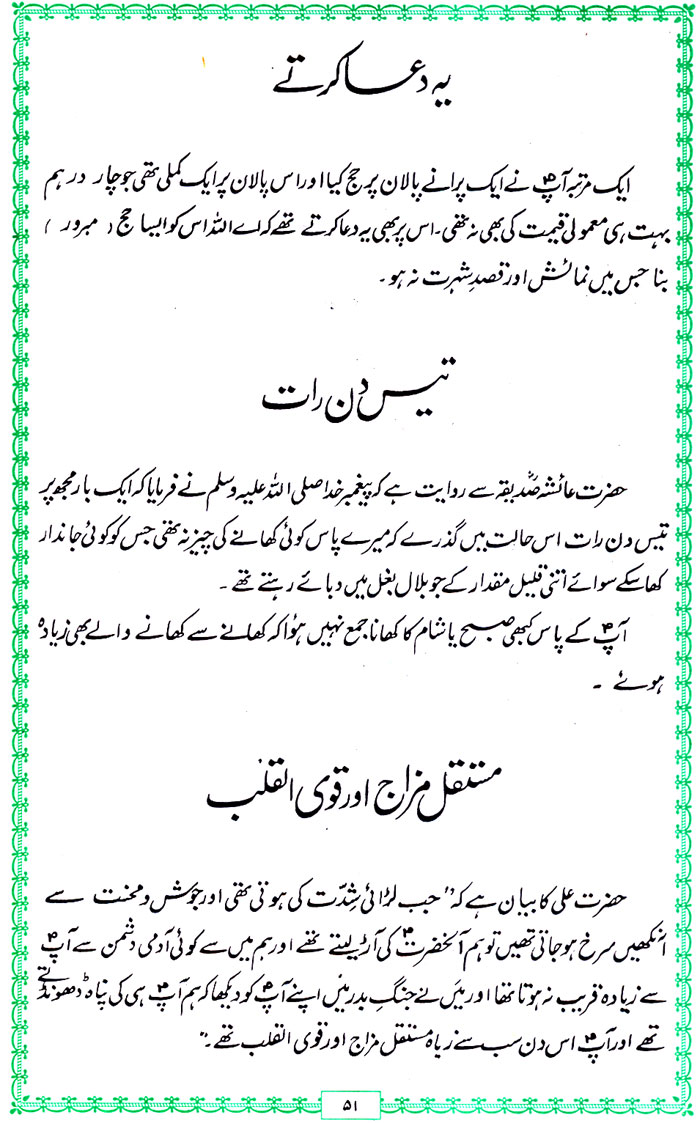 یہ دعا کرتے
ایک مرتبہ آپؐ نے ایک پرانے پالان پر حج کیا اور اس پالان پر ایک کملی تھی جو چار درہم
بہت ہی معمولی قیمت کی بھی نہ تھی۔ اس پر بھی یہ دعا کرتے تھے کہ اے اللہ اس کو ایسا حج ( مبرور )
بنا جس میں نمائش اور قصدِ شہرت نہ ہو۔
تیس دن رات
حضرت عائشہ صدیقہؓ سے روایت ہے کہ پیغمبر خدا صلی اللہ علیہ وسلم نے فرمایا کہ ایک بار مجھ پر
تیس دن رات اس حالت میں گذرے کہ میرے پاس کوئی کھانے کی چیز نہ تھی جس کو کوئی جاندار
کھا سکے سوائے اتنی قلیل مقدار کے جو بلال بغل میں دبائے رہتے تھے۔
آپؐ کے پاس کبھی صبح یا شام کا کھانا جمع نہیں ہوا کہ کھانے سے کھانے والے بھی زیادہ
ہوئے ۔
مستقل مزاج اور قوی القلب
حضرت علی کا بیان ہے کہ "جب لڑائی شدّت کی ہوتی تھی اور جوش و محنت سے
آنکھیں سرخ ہو جاتی تھیں تو ہم آنحضرتؐ کی آڑ لیتے تھے اور ہم میں سے کوئی آدمی دشمن سے آپؐ
سے زیادہ قریب نہ ہوتا تھا اور میں نے جنگِ بدر میں اپنے آپؐ کو دیکھا کہ ہم آپؐ ہی کی پناہ ڈھونڈتے
تھے اور آپؐ اس دن سب سے زیاہ مستقل مزاج اور قوی القلب تھے۔"
۵۱